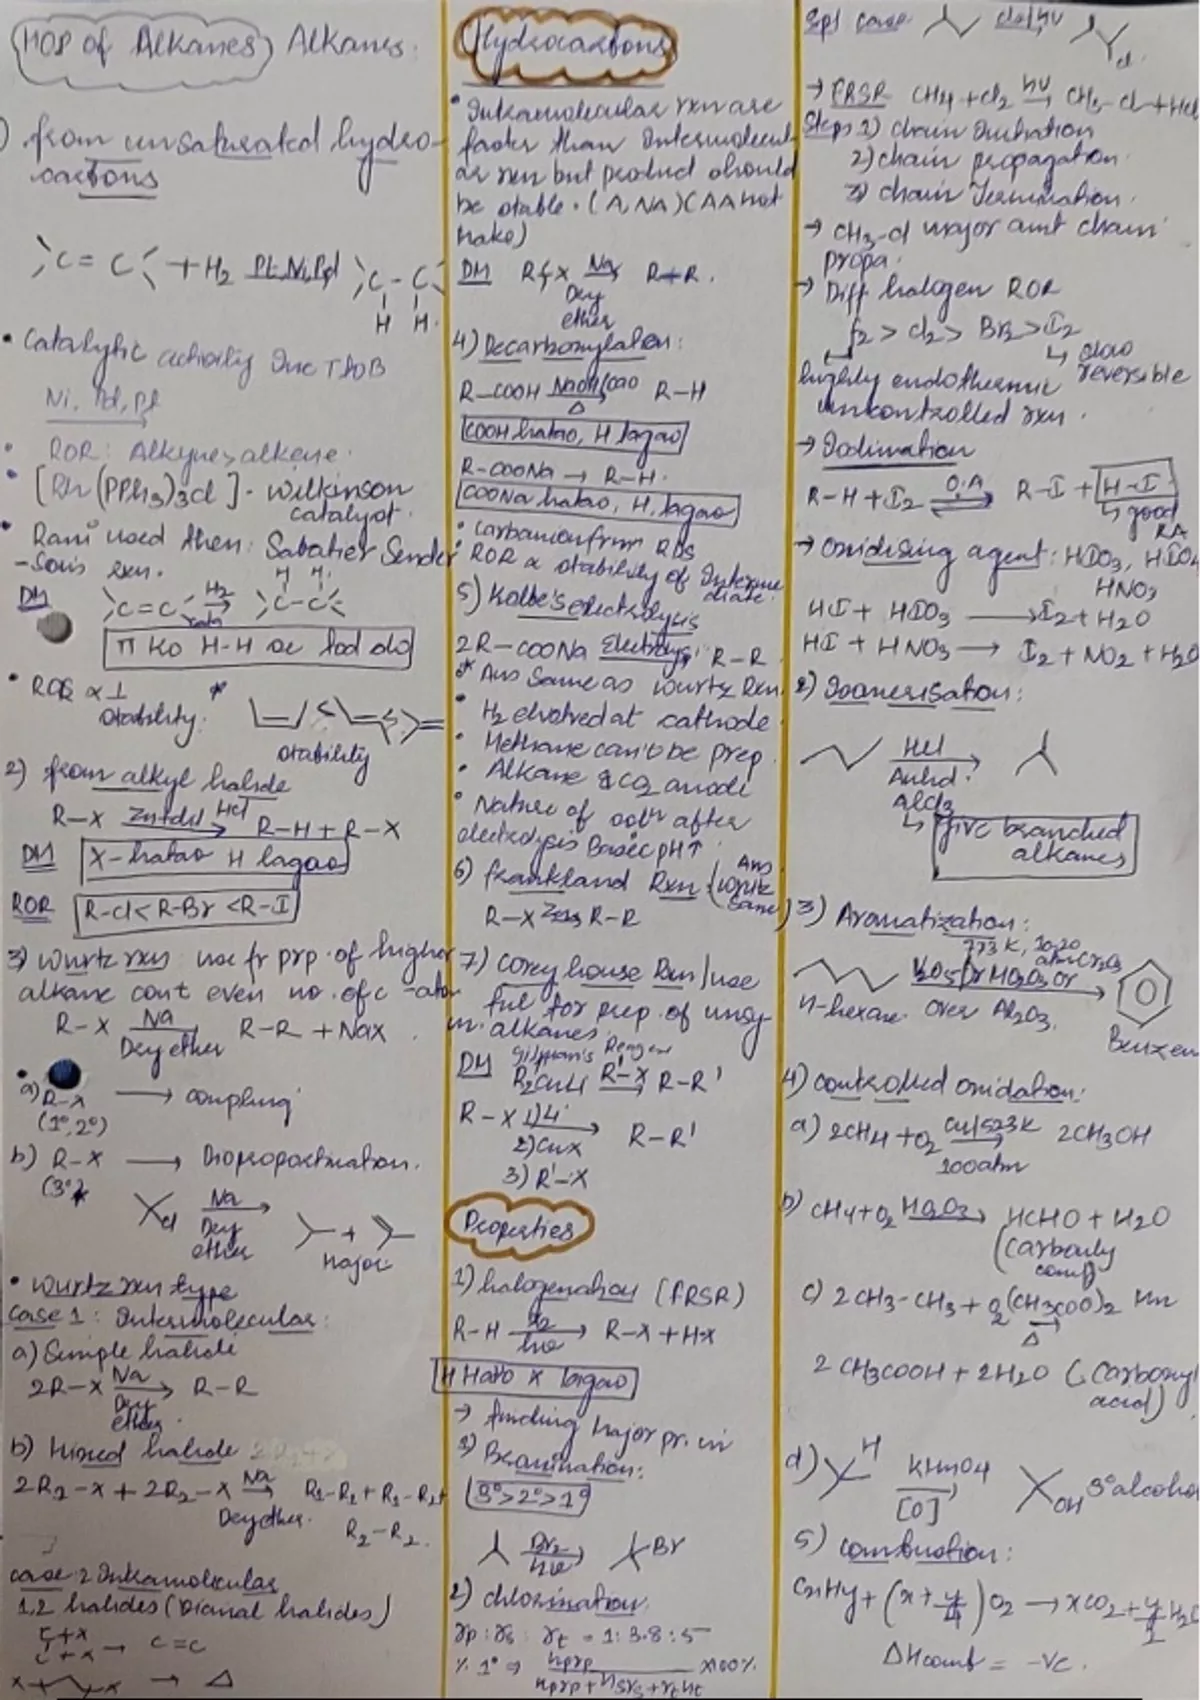 MOP of Alkanes) Alkanes.
) from unsaturated hydro-
carbons
C = C + H2 Pt, Ni, Pd C - C
H H.
• Catalytic activity
Ni, Pd, Pt
• ROR: Alkyne > alkene.
• [Rh(PPh3)3Cl] - Wilkinson
catalyst.
• Rani used then: Sabatier Sender
-Son's rxn.
H H
DM C=C H2 C-C
Π KO H-H se tod do
• ROR ∝ 1
stability.
stability
2) from alkyl halide
R-X Zn+dil HCl R-H + R-X
DM X-hatao H lagao
ROR R-Cl < R-Br < R-I
3) wurtz rxn use fr prp. of higher
alkane cont even no. of c-atom
R-X Na R-R + Nax
Dry ether
a) R-X → coupling
(1°, 2°)
b) R-X → Disproportination.
(3°)
Cl Na +
Dry
ether Major
• wurtz rxn type
Case 1: Intermolecular:
a) Simple halide
2R-X Na R-R
Dry
ether.
b) Mixed halide
2R1-X + 2R2-X Na R1-R1 + R1-R2+
Dry ether. R2-R2.
case: 2 Intramolecular
1,2 halides (Dianal halides)
C+X
C+X → C=C
X X → Δ
Hydrocarbons
• Intramolecular rxn are
faster than Intermolecul-
ar rxn but product should
be stable. (A, NA) (AA not
make)
DM R X Na R+R.
Dry
ether
4) Decarboxylation:
R-COOH NaOH/CaO R-H
Δ
COOH hatao, H lagao
R-COONa → R-H.
COONa hatao, H, lagao
• carbanion from RDS
• ROR ∝ stability of Interme
diate.
5) Kolbe's electrolysis
2R-COONa Electrolys. R-R
* Ans Same as wurtz Rxn.
• H2 elvolved at cathode
• Methane can't be prep.
• Alkane & CO2 anode
• Nature of soln after
electrolysis Basic pH↑
6) frankland Rxn (Ans
wurtz
same)
R-X Zn R-R
7) corey house Rxn/use
ful for prep. of unsy
m. alkanes.
DM Gilman's Reagen
R2CuLi R'-X R-R'
R-X 1)
2) CuX R-R'
3) R'-X
Properties
1) halogenation (FRSR)
R-H X2 R-X + HX
hν
H Hato X lagao
→ finding Major pr. in
1) Bromination:
3°>2°>1°
Br2 Br
hν
2) chlorination
rp : rs : rt = 1 : 3.8 : 5
% 1° ⇒ nprp x100%
nprp + nsrs + rtnt
Spl case Cl2/hν
Cl
→ FRSR CH4 + Cl2 hν CH3-Cl + HCl
Steps 1) chain Initiation
2) chain propagation
3) chain Termination.
→ CH3-Cl major amt chain
propa.
→ Diff halogen ROR
F2 > Cl2 > Br2 > I2
slow
reversible
highly endothermic
uncontrolled rxn.
→ Iodination
R-H + I2 O.A R-I + H-I
good
RA
→ Oxidising agent: HIO3, HIO4
HNO3
HI + HIO3 → I2 + H2O
HI + HNO3 → I2 + NO2 + H2O
2) Isomerisation:
HCl
Anhd.
AlCl3
give branched
alkanes
3) Aromatization:
773 K, 10-20
atm Cr2O3
V2O5 Or Mo2O3 Or
n-hexane Over Al2O3. Benzen
4) controlled oxidation:
a) 2CH4 + O2 Cu/523K 2CH3OH
100atm
b) CH4 + O2 Mo2O3 HCHO + H2O
(Carbonly
comp)
c) 2CH3-CH3 + O2 (CH3COO)2 Mn
Δ
2CH3COOH + 2H2O (Carboxyl
acid)
d) H KMnO4 OH 3° alcohol
[O]
5) combustion:
CxHy + (x + y/4) O2 → xCO2 + y/2 H2O
ΔHcomb = -Ve.